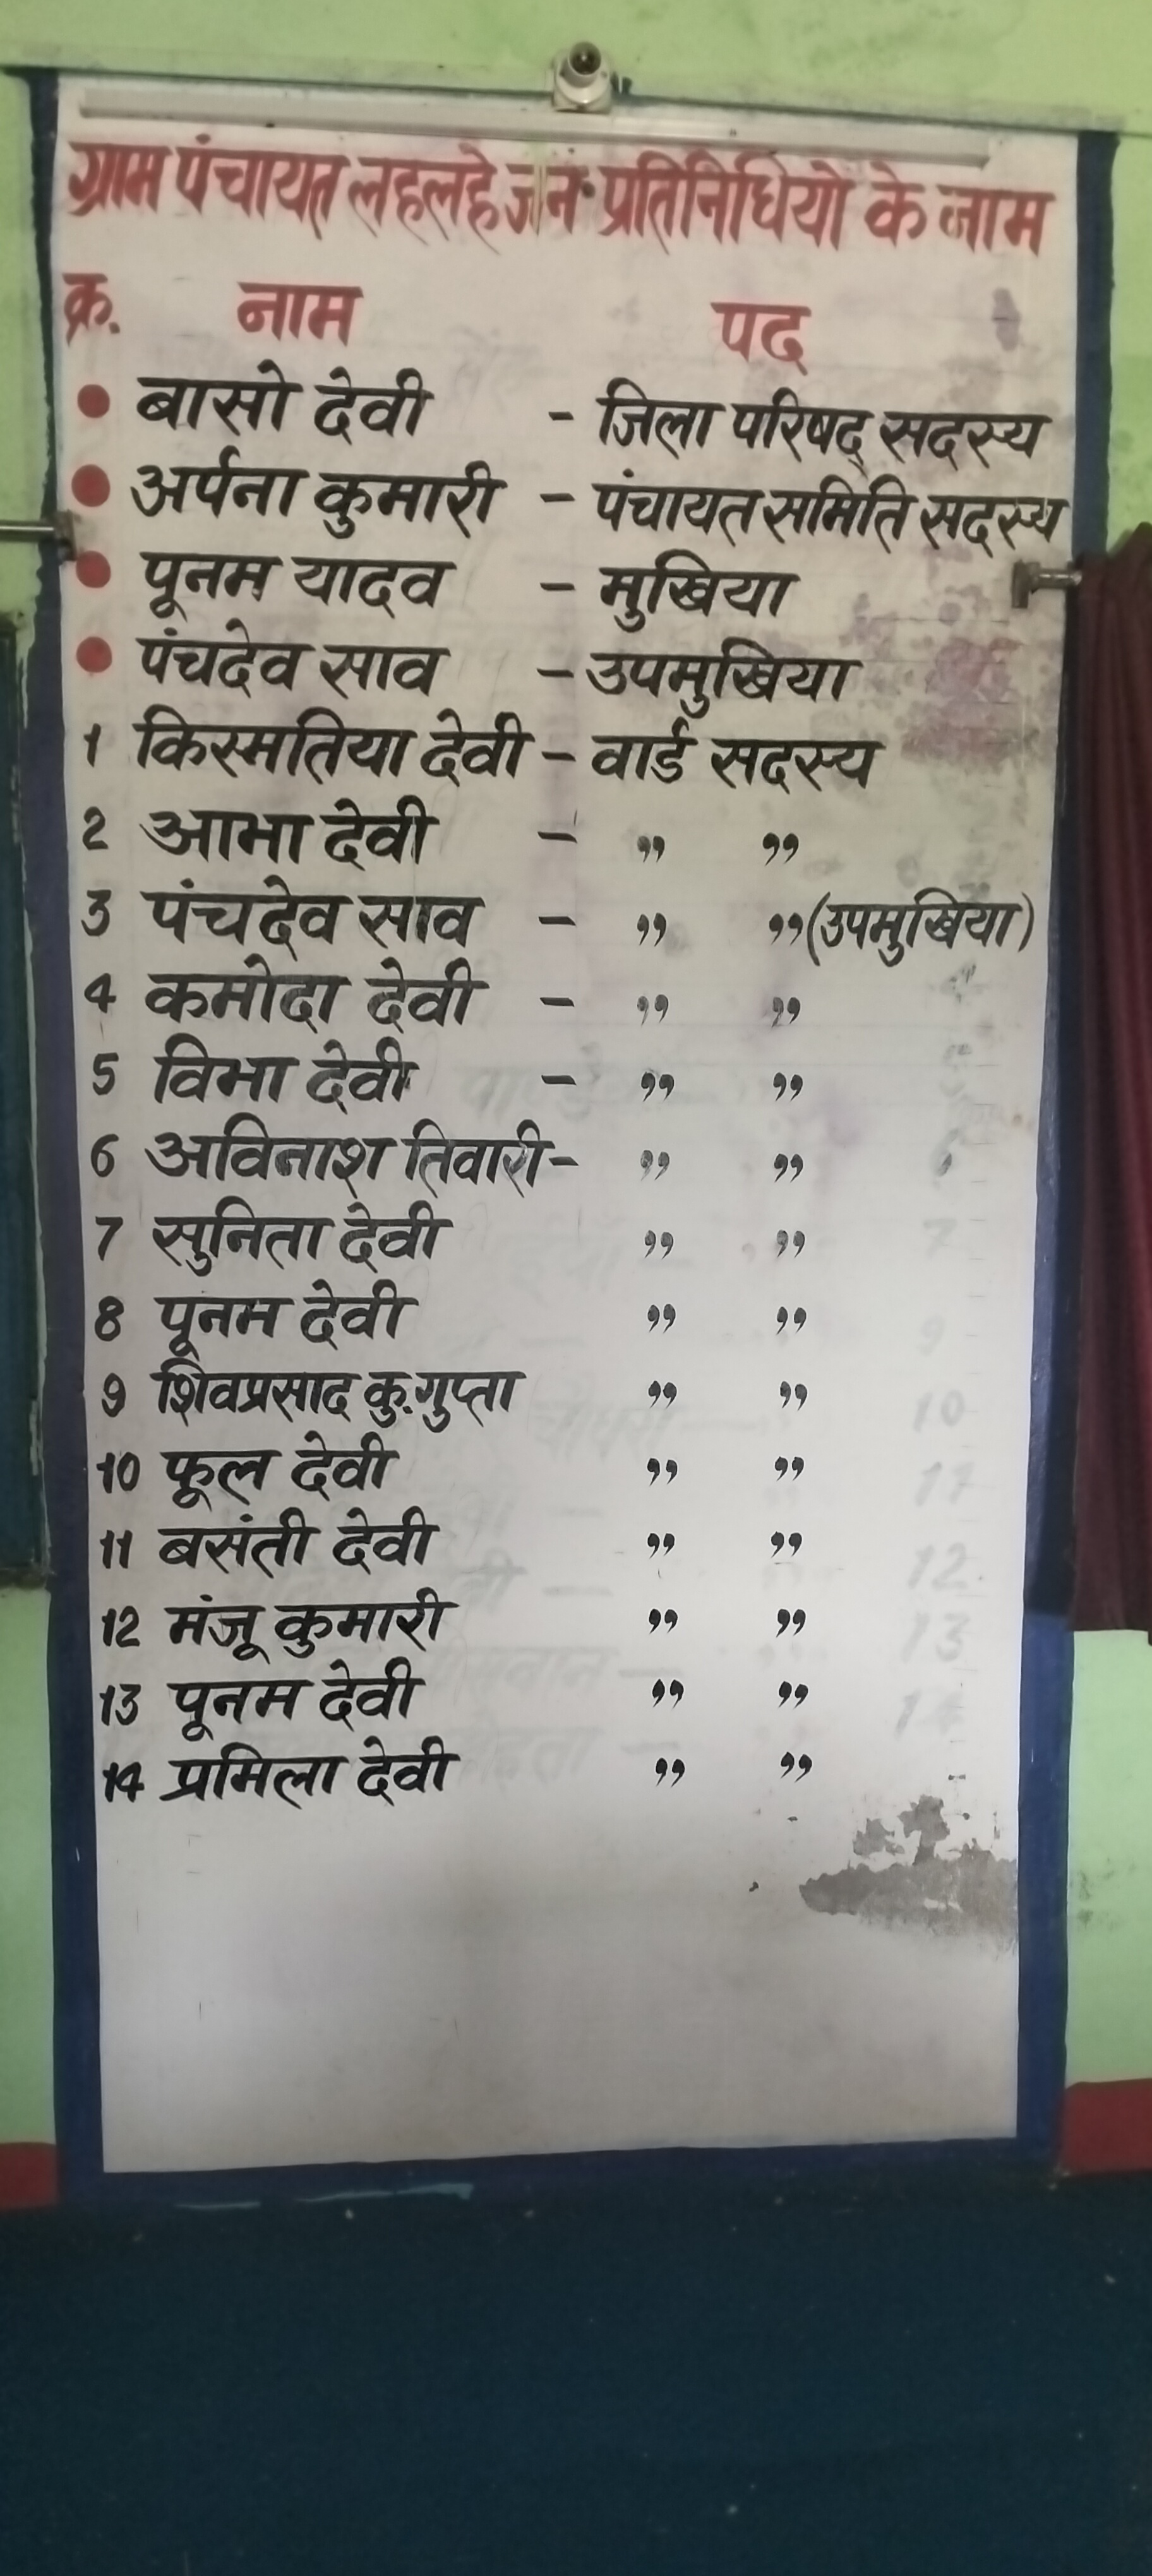 ग्राम पंचायत लहलहे जन प्रतिनिधियो के नाम
क्र. नाम पद
• बासो देवी - जिला परिषद् सदस्य
• अर्पना कुमारी - पंचायत समिति सदस्य
• पूनम यादव - मुखिया
• पंचदेव साव - उपमुखिया
1 किस्मतिया देवी - वार्ड सदस्य
2 आभा देवी - ” ”
3 पंचदेव साव - ” ” (उपमुखिया)
4 कमोदा देवी - ” ”
5 विभा देवी - ” ”
6 अविनाश तिवारी - ” ”
7 सुनिता देवी ” ”
8 पूनम देवी ” ”
9 शिवप्रसाद कु. गुप्ता ” ”
10 फूल देवी ” ”
11 बसंती देवी ” ”
12 मंजू कुमारी ” ”
13 पूनम देवी ” ”
14 प्रमिला देवी ” ”